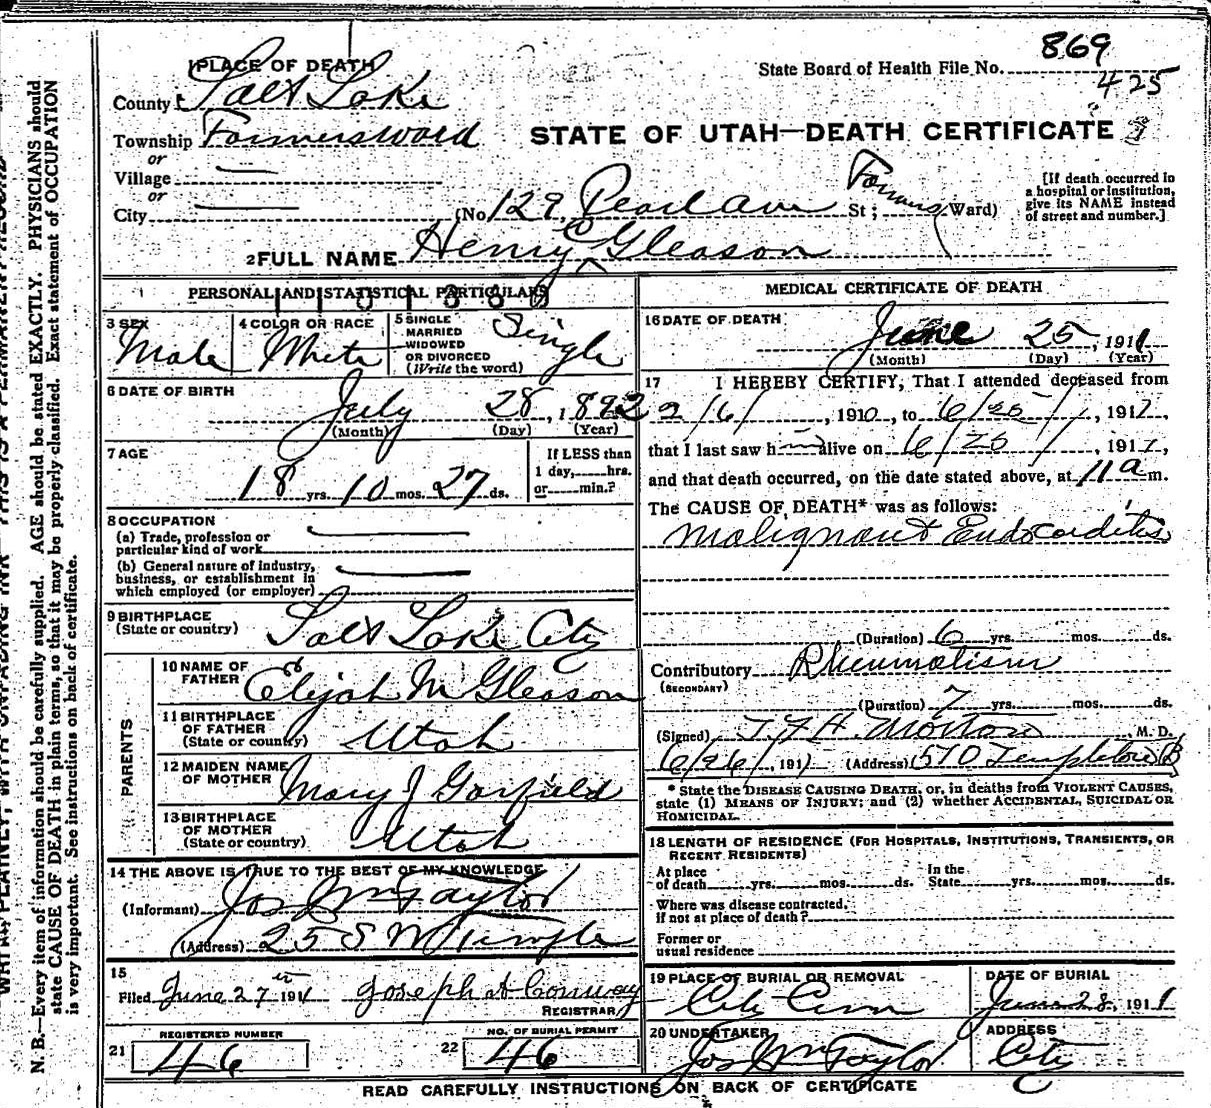 869
State Board of Health File No.
425
PLACE OF DEATH
County Salt Lake
Township Farmers Ward
or
Village
or
City
STATE OF UTAH—DEATH CERTIFICATE
(No 129 Pearl Ave St; Farmers Ward)
[If death occurred in
a hospital or institution,
give its NAME instead
of street and number.]
2 FULL NAME Henry C Gleason
PERSONAL AND STATISTICAL PARTICULARS
3 SEX
Male
4 COLOR OR RACE
White
5 SINGLE
MARRIED
WIDOWED
OR DIVORCED
(Write the word)
Single
6 DATE OF BIRTH
July 28, 1892
(Month) (Day) (Year)
7 AGE
18 yrs. 10 mos. 27 ds.
If LESS than
1 day, hrs.
or min.?
8 OCCUPATION
(a) Trade, profession or
particular kind of work
(b) General nature of industry,
business, or establishment in
which employed (or employer)
9 BIRTHPLACE
(State or country)
Salt Lake City
PARENTS
10 NAME OF
FATHER
Elijah M Gleason
11 BIRTHPLACE
OF FATHER
(State or country)
Utah
12 MAIDEN NAME
OF MOTHER
Mary J Garfield
13 BIRTHPLACE
OF MOTHER
(State or country)
Utah
14 THE ABOVE IS TRUE TO THE BEST OF MY KNOWLEDGE
(Informant) Jos Wm Taylor
(Address) 25 S W Temple
15
Filed June 27th 1911 Joseph H Conway
REGISTRAR
REGISTERED NUMBER
21 46
NO. OF BURIAL PERMIT
22 46
MEDICAL CERTIFICATE OF DEATH
16 DATE OF DEATH
June 25, 1911
(Month) (Day) (Year)
17 I HEREBY CERTIFY, That I attended deceased from
2/6/, 1910, to 6/25/, 1911,
that I last saw him alive on 6/25/, 1911,
and that death occurred, on the date stated above, at 11 a m.
The CAUSE OF DEATH* was as follows:
Malignant Endocarditis
(Duration) 6 yrs. mos. ds.
Contributory Rheumatism
(SECONDARY)
(Duration) 7 yrs. mos. ds.
(Signed) T. F. H. Morton, M. D.
6/26/, 1911 (Address) 510 Templeton B
* State the DISEASE CAUSING DEATH, or, in deaths from VIOLENT CAUSES,
state (1) MEANS OF INJURY; and (2) whether ACCIDENTAL, SUICIDAL OR
HOMICIDAL.
18 LENGTH OF RESIDENCE (FOR HOSPITALS, INSTITUTIONS, TRANSIENTS, OR
RECENT RESIDENTS)
At place
of death yrs. mos. ds.
In the
State yrs. mos. ds.
Where was disease contracted,
if not at place of death?
Former or
usual residence
19 PLACE OF BURIAL OR REMOVAL
City Cem
DATE OF BURIAL
June 28, 1911
20 UNDERTAKER
Jos Wm Taylor
ADDRESS
City
READ CAREFULLY INSTRUCTIONS ON BACK OF CERTIFICATE
N. B.—Every item of information should be carefully supplied. AGE should be stated EXACTLY. PHYSICIANS should
state CAUSE OF DEATH in plain terms, so that it may be properly classified. Exact statement of OCCUPATION
is very important. See instructions on back of certificate.